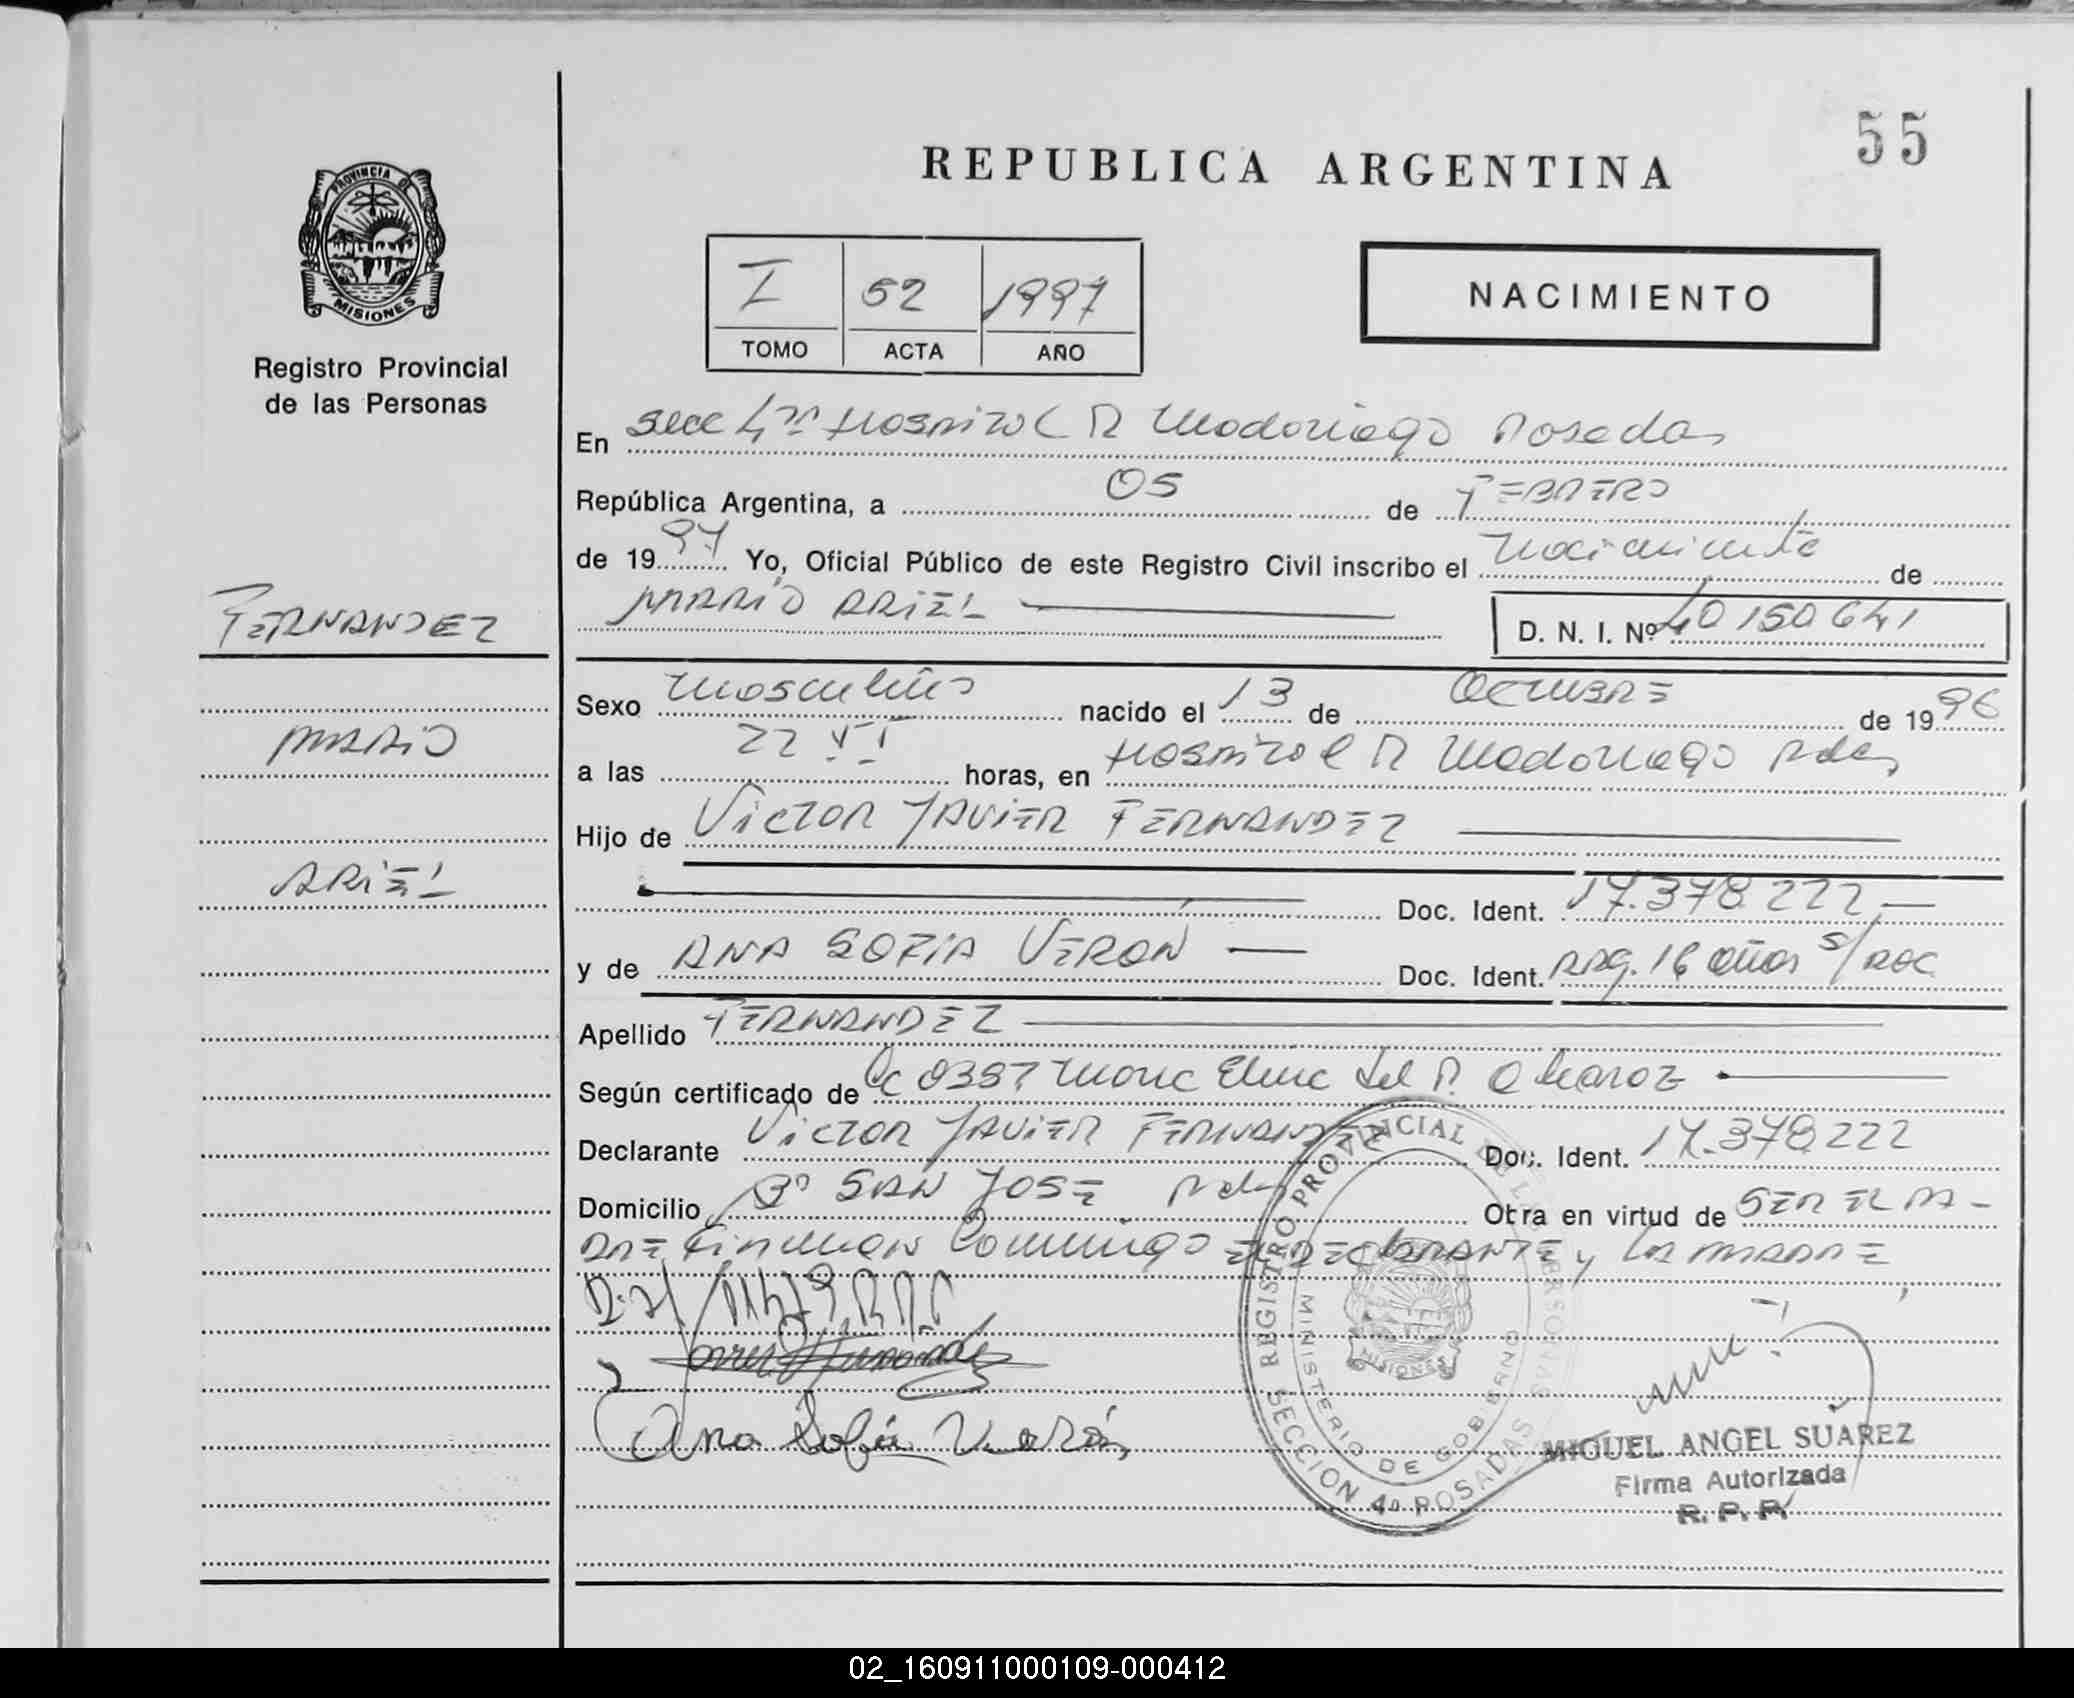 55
REPUBLICA ARGENTINA
PROVINCIA DE
MISIONES
I 52 1997
TOMO ACTA AÑO
NACIMIENTO
Registro Provincial
de las Personas
En Secc 4ta Hospital R Madariaga Posadas
República Argentina, a 05 de FEBRERO
de 1997 Yo, Oficial Público de este Registro Civil inscribo el nacimiento de
MARIO ARIEL D. N. I. Nº 40150641
FERNANDEZ
MARIO
ARIEL
Sexo masculino nacido el 13 de OCTUBRE de 1996
a las 22 horas, en Hospital R Madariaga Pdas
Hijo de VICTOR JAVIER FERNANDEZ
Doc. Ident. 17.378.222
y de ANA SOFIA VERON Doc. Ident. Arg. 16 años s/doc
Apellido FERNANDEZ
Según certificado de
Declarante VICTOR JAVIER FERNANDEZ Doc. Ident. 17.378.222
Domicilio Bº SAN JOSE Pdas Obra en virtud de SER EL PA-
DRE firman conmigo EL DECLARANTE y LA MADRE
Ana Sofia Verón
REGISTRO PROVINCIAL DE LAS PERSONAS
MINISTERIO DE GOBIERNO
MISIONES
SECCION 4a POSADAS
MIGUEL ANGEL SUAREZ
Firma Autorizada
R. P. P.
02_160911000109-000412